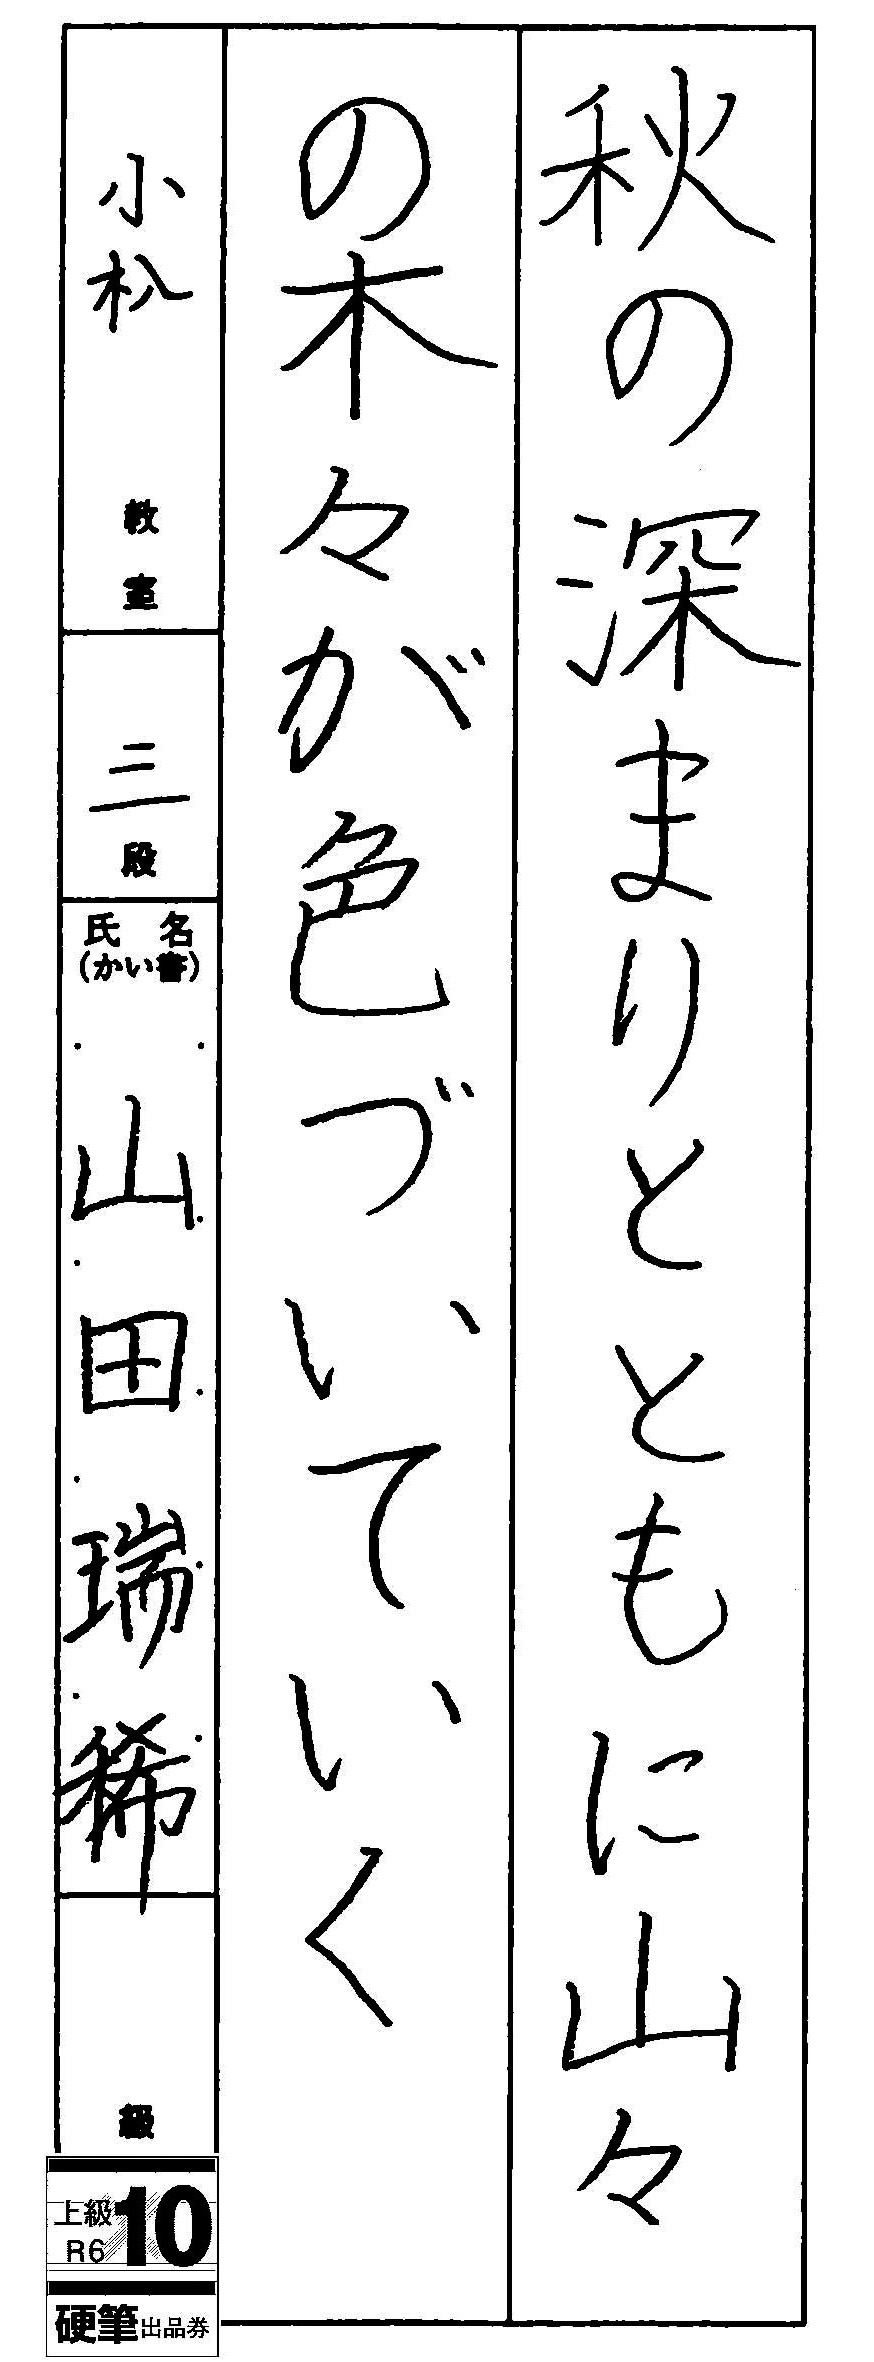 秋の深まりとともに山々
の木々が色づいていく
小松
教室
三
段
氏名
(かい書)
山田瑞稀
級
上級
R6
10
硬筆出品券